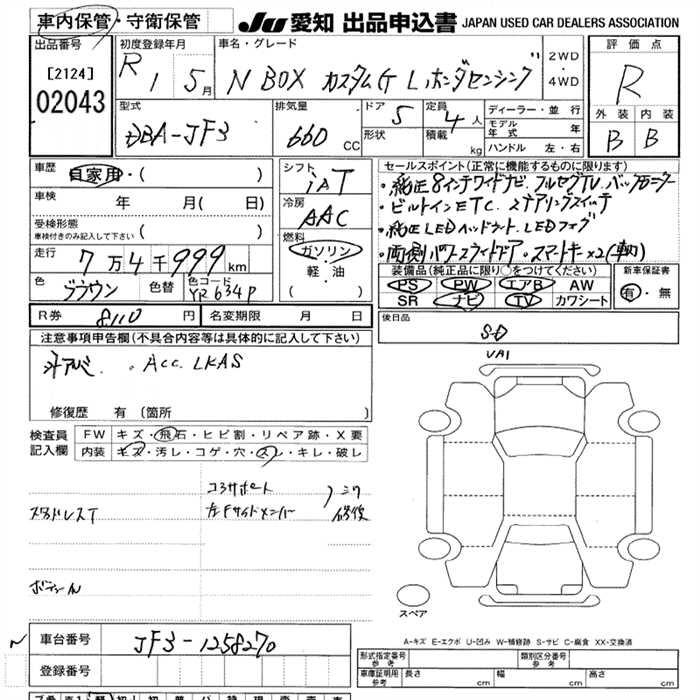 車内保管・守衛保管
JU 愛知 出品申込書 JAPAN USED CAR DEALERS ASSOCIATION
出品番号
[2124]
02043
初度登録年月
R 1 5月
車名・グレード
N BOX カスタムG Lホンダセンシング
2WD
・
4WD
評価点
R
外装 内装
B B
型式
DBA-JF3
排気量
660 CC
ドア 5
形状
定員 4人
積載 kg
ディーラー・並行
モデル年式 年
ハンドル 左・右
車歴
自家用・( )
車検
年 月( 日)
受検形態
車検付きのみ記入して下さい
( )
走行
7万4千999km
色
ブラウン
色替
色コード
YR634P
シフト
iAT
冷房
AAC
燃料
ガソリン
・
軽・油
( )
セールスポイント(正常に機能するものに限ります)
・純正8インチワイドナビ. フルセグTV. バックモニター
・ビルトインETC. ステアリングスイッチ
・純正LEDヘッドライト. LEDフォグ
・両側パワースライドドア. スマートキー×2(車内)
装備品(純正品に限り○をつけてください)
PS PW エアB AW
SR ナビ TV カワシート
新車保証書
有・無
R券 8110 円 名変期限 月 日
後日品
S-D
注意事項申告欄(不具合内容等は具体的に記入して下さい)
外アルミ. . ACC. LKAS
修復歴 有 (箇所 )
検査員
記入欄
FW キズ・飛石・ヒビ割・リペア跡・X要
内装 キズ・汚レ・コゲ・穴・スレ・キレ・破レ
コアサポート
左Fサイドメンバー
修復
スタッドレスT
スペア
A-キズ E-エクボ U-凹み W-補修跡 S-サビ C-腐食 XX-交換済
車台番号 JF3-1258270
登録番号
形式指定番号
参考
類別区分番号
参考
車庫証明用
参考
長さ cm 幅 cm 高さ cm